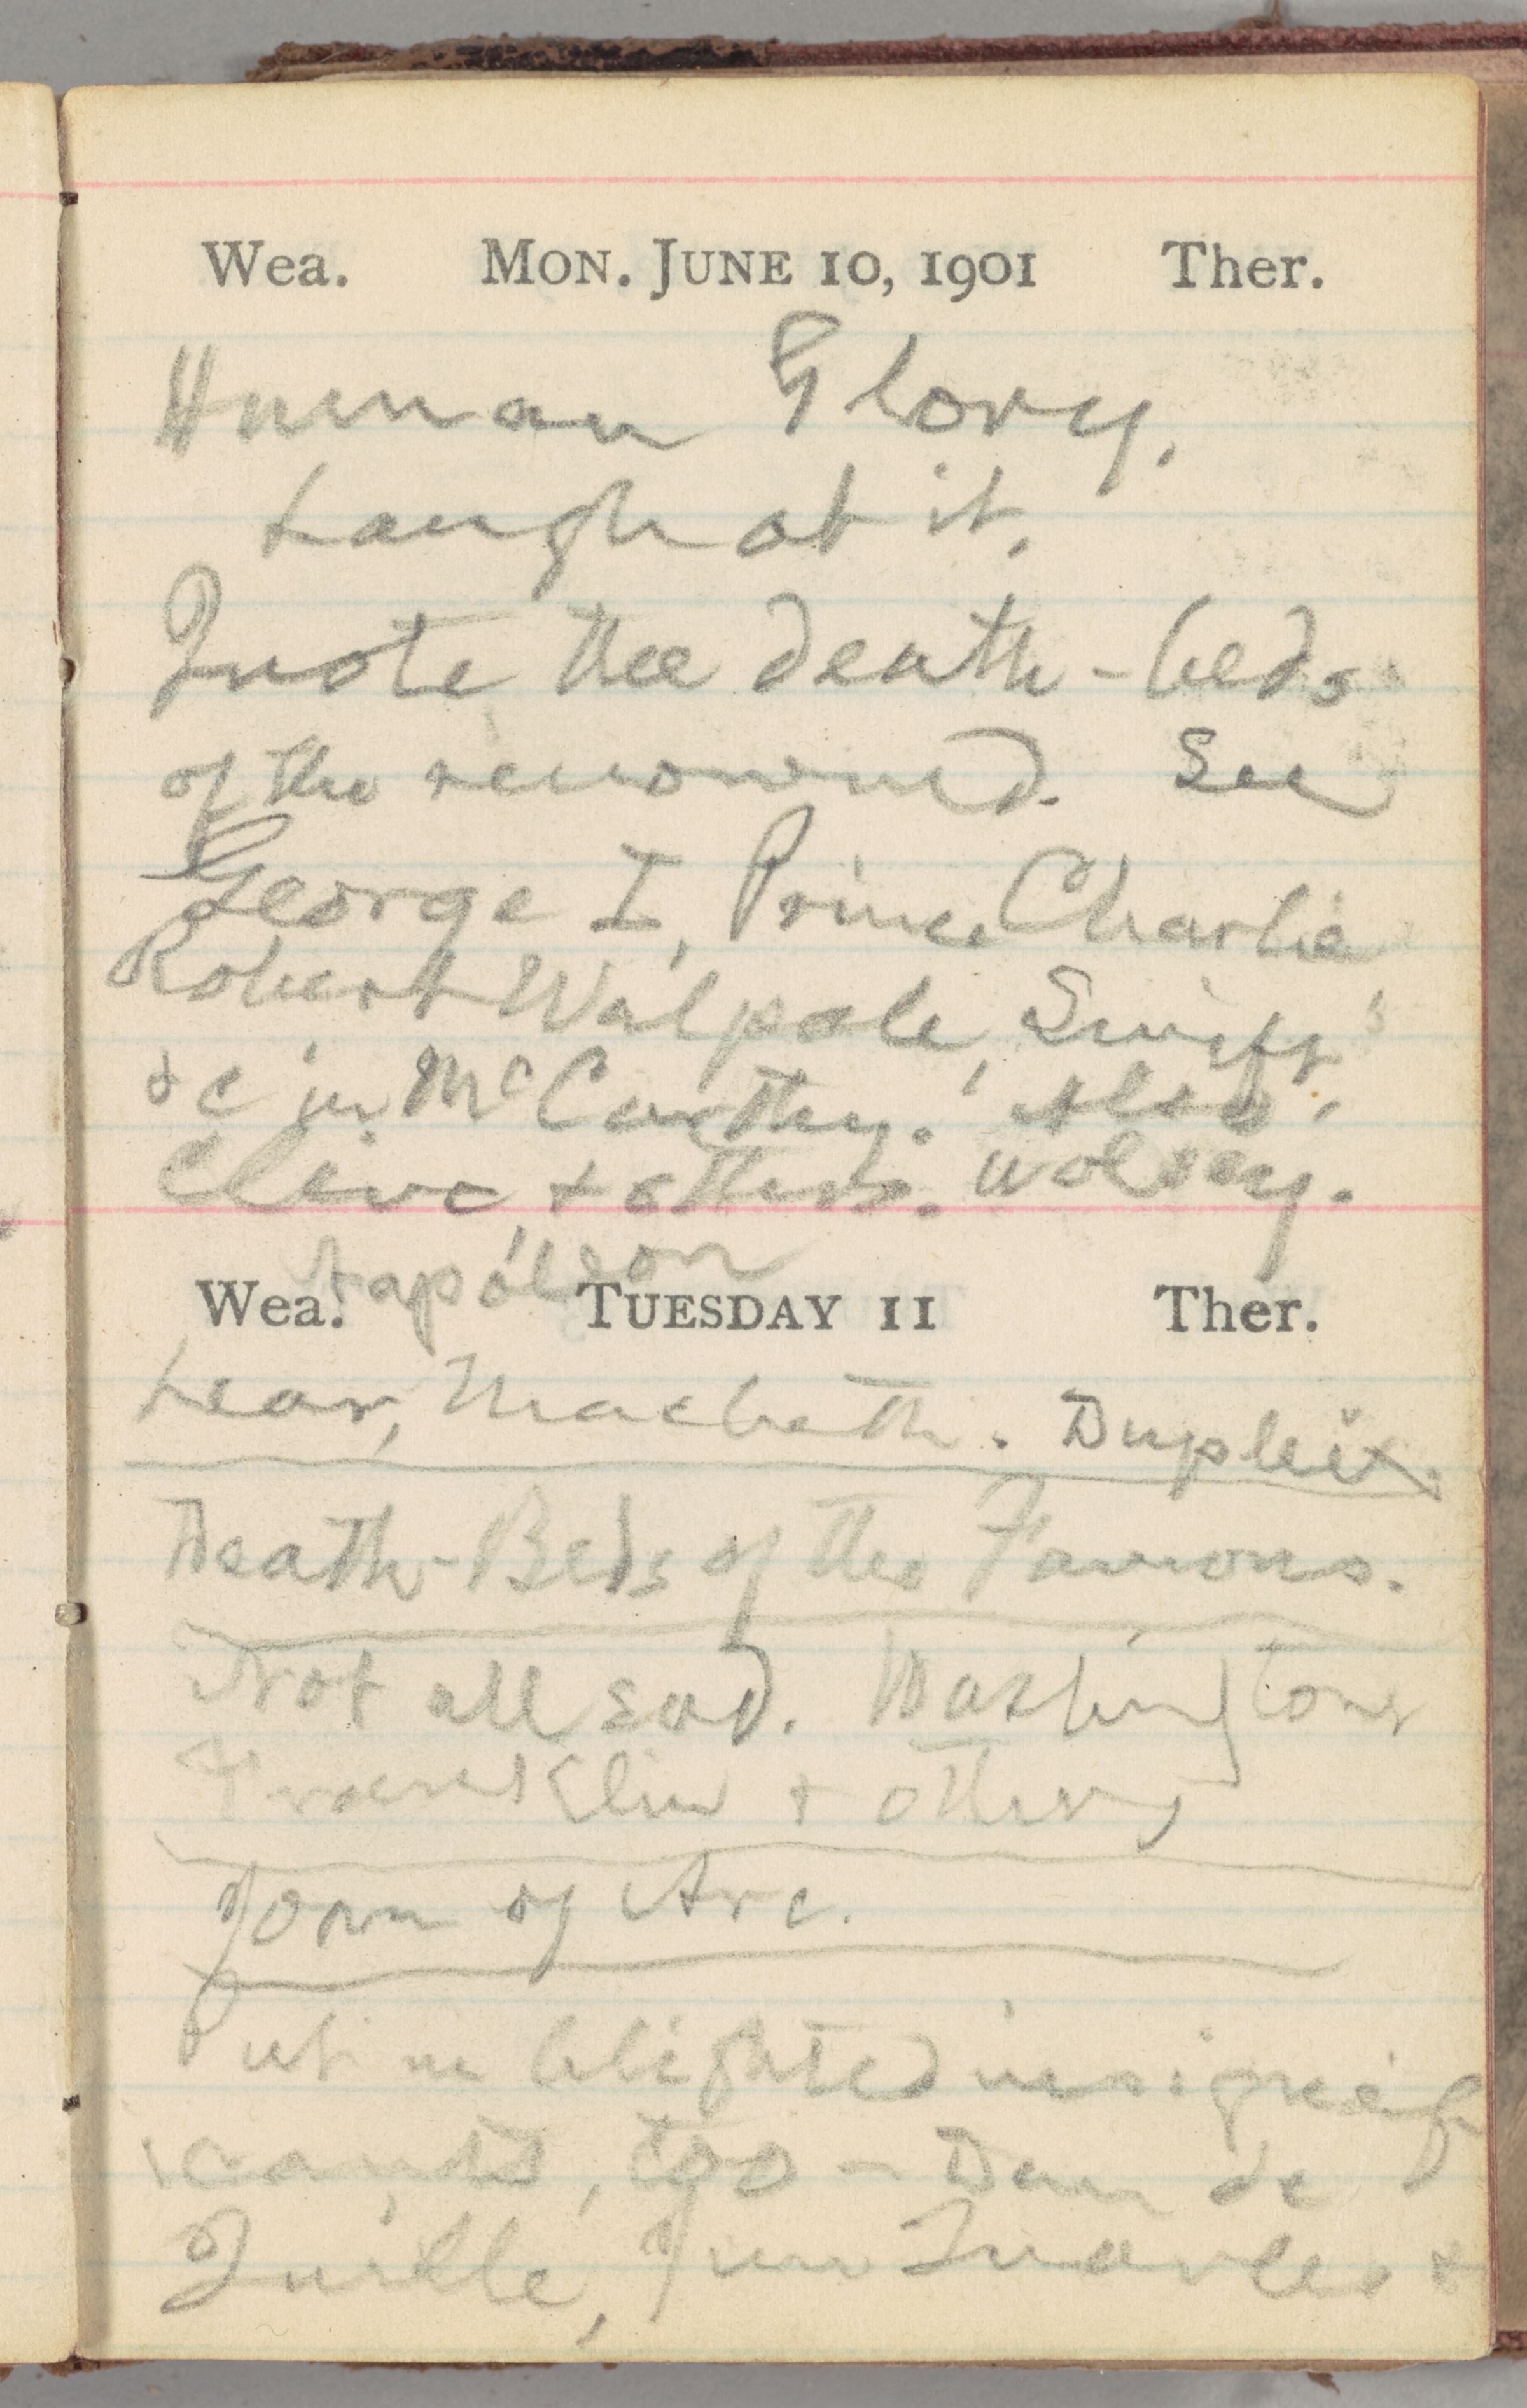 Wea. MON. JUNE 10, 1901 Ther.
Human Glory,
Laugh at it.
Quote the death-beds
of the renowned. See
George I, Prince Charlie
Robert Walpole, Swift,
&c in McCarthy. Also,
Clive, & others. Wolsey.
Napoleon
Wea. TUESDAY 11 Ther.
Lear, Macbeth. Dupleix.
Death-Beds of the Famous.
Not all sad. Washington
Franklin & others
Joan of Arc.
Put in blighted insignif
icants, too – Dan de
Quille, Jim &